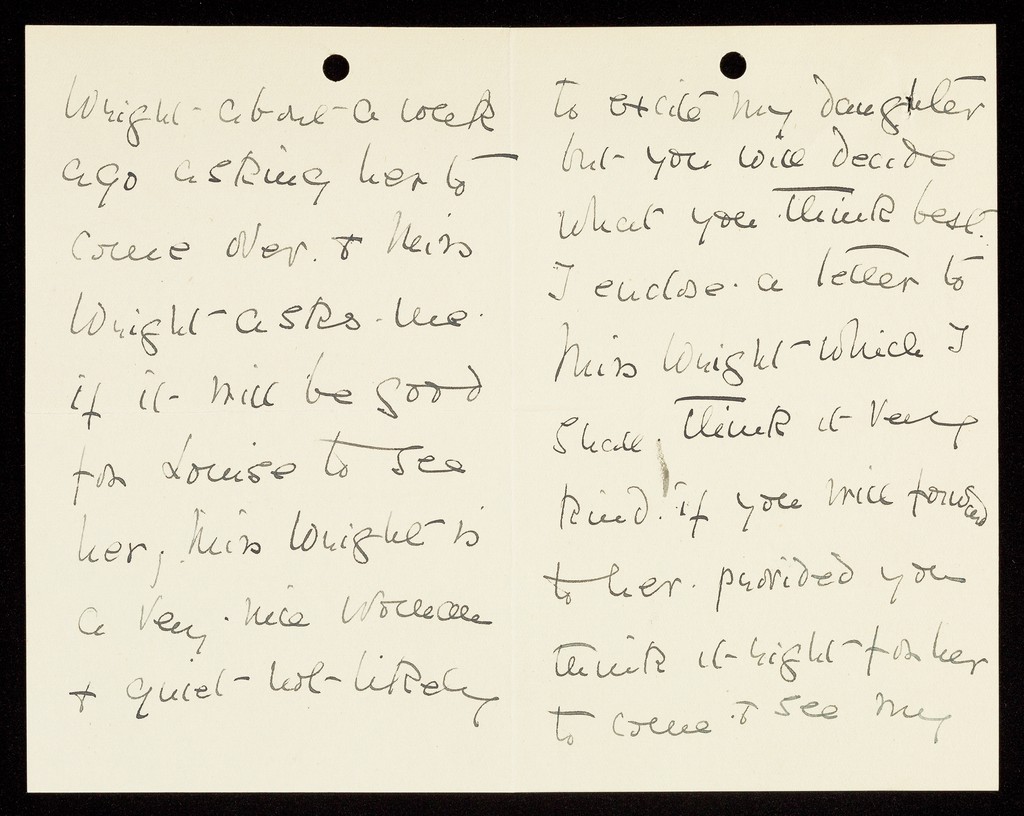 Wright - about - a week
ago asking her to
come over. & Miss
Wright - asks. me.
if it - will be good
for Louise to see
her, Miss Wright is
a very. nice woman
& quiet - not - likely
to excite my daughter
but - you will decide
what you think best.
I enclose. a letter to
Miss Wright - which I
shall, think it very
kind. if you will forward
to her. provided you
think it - right - for her
to come & see my